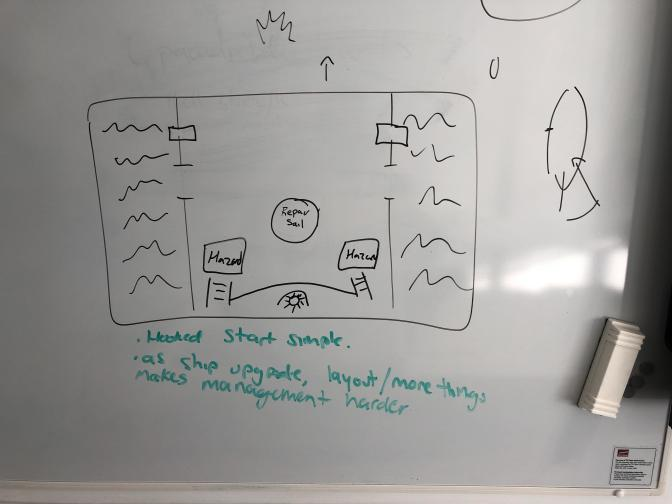 Repair
Sail
Hazard
Hazard
. Hooked Start simple.
. as ship upgrade, layout/more things
makes management harder